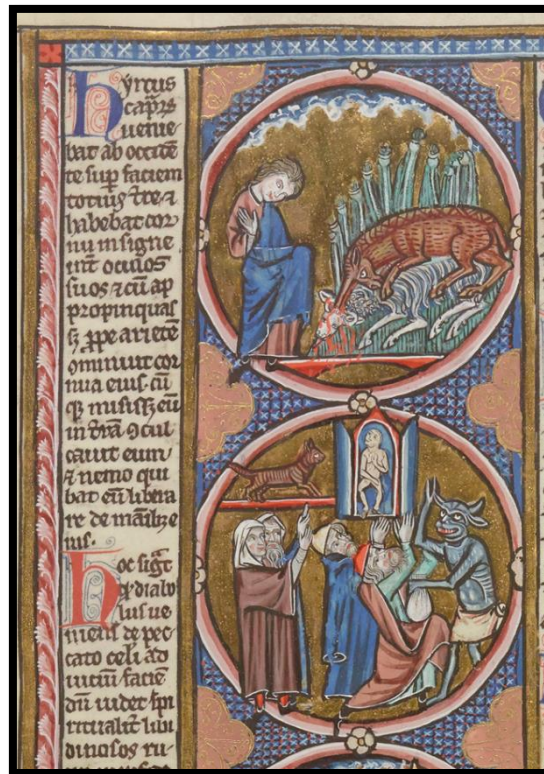 Hyrcus
cap̃rꝫ
uenie
bat ab occidẽ
te sup̱ faciem
totius t̃re ⁊
habebat cor
nu insigne
int̃ oculos
suos ⁊ cũ ap
propinquas
sꝫ ꝓpe arietẽ
ↄminuit cor
nua eius cũ
qꝫ misissꝫ eũ
in t̃rã ↄcul
cauit eum
⁊ nemo qui
bat eũ libera
re de
Hoc sig̃t
ꝙ diabo
lus ue
niens de pec
cato celi ad
faciẽ
dñi uidet sp̃i
ritualit̃ libi
dinosos